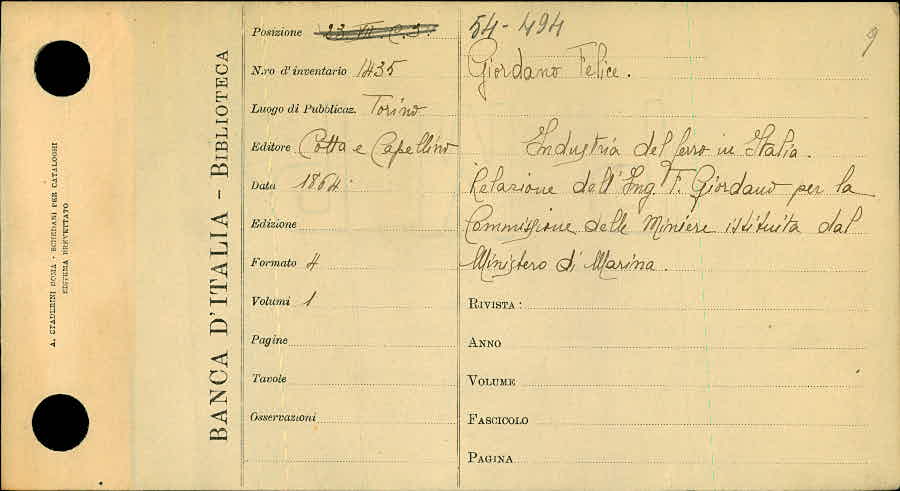 A. STADERINI ROMA - SCHEDARI PER CATALOGHI
SISTEMA BREVETTATO
BANCA D'ITALIA - BIBLIOTECA
Posizione 23 VII. C. 3.
N.ro d'inventario 1435
Luogo di Pubblicaz. Torino
Editore Cotta e Capellino
Data 1864.
Edizione
Formato 4
Volumi 1
Pagine
Tavole
Osservazioni
54-494
9
Giordano Felice.
Industria del ferro in Italia.
Relazione dell'Ing. F. Giordano per la
Commissione delle Miniere istituita dal
Ministero di Marina.
RIVISTA:
ANNO
VOLUME
FASCICOLO
PAGINA